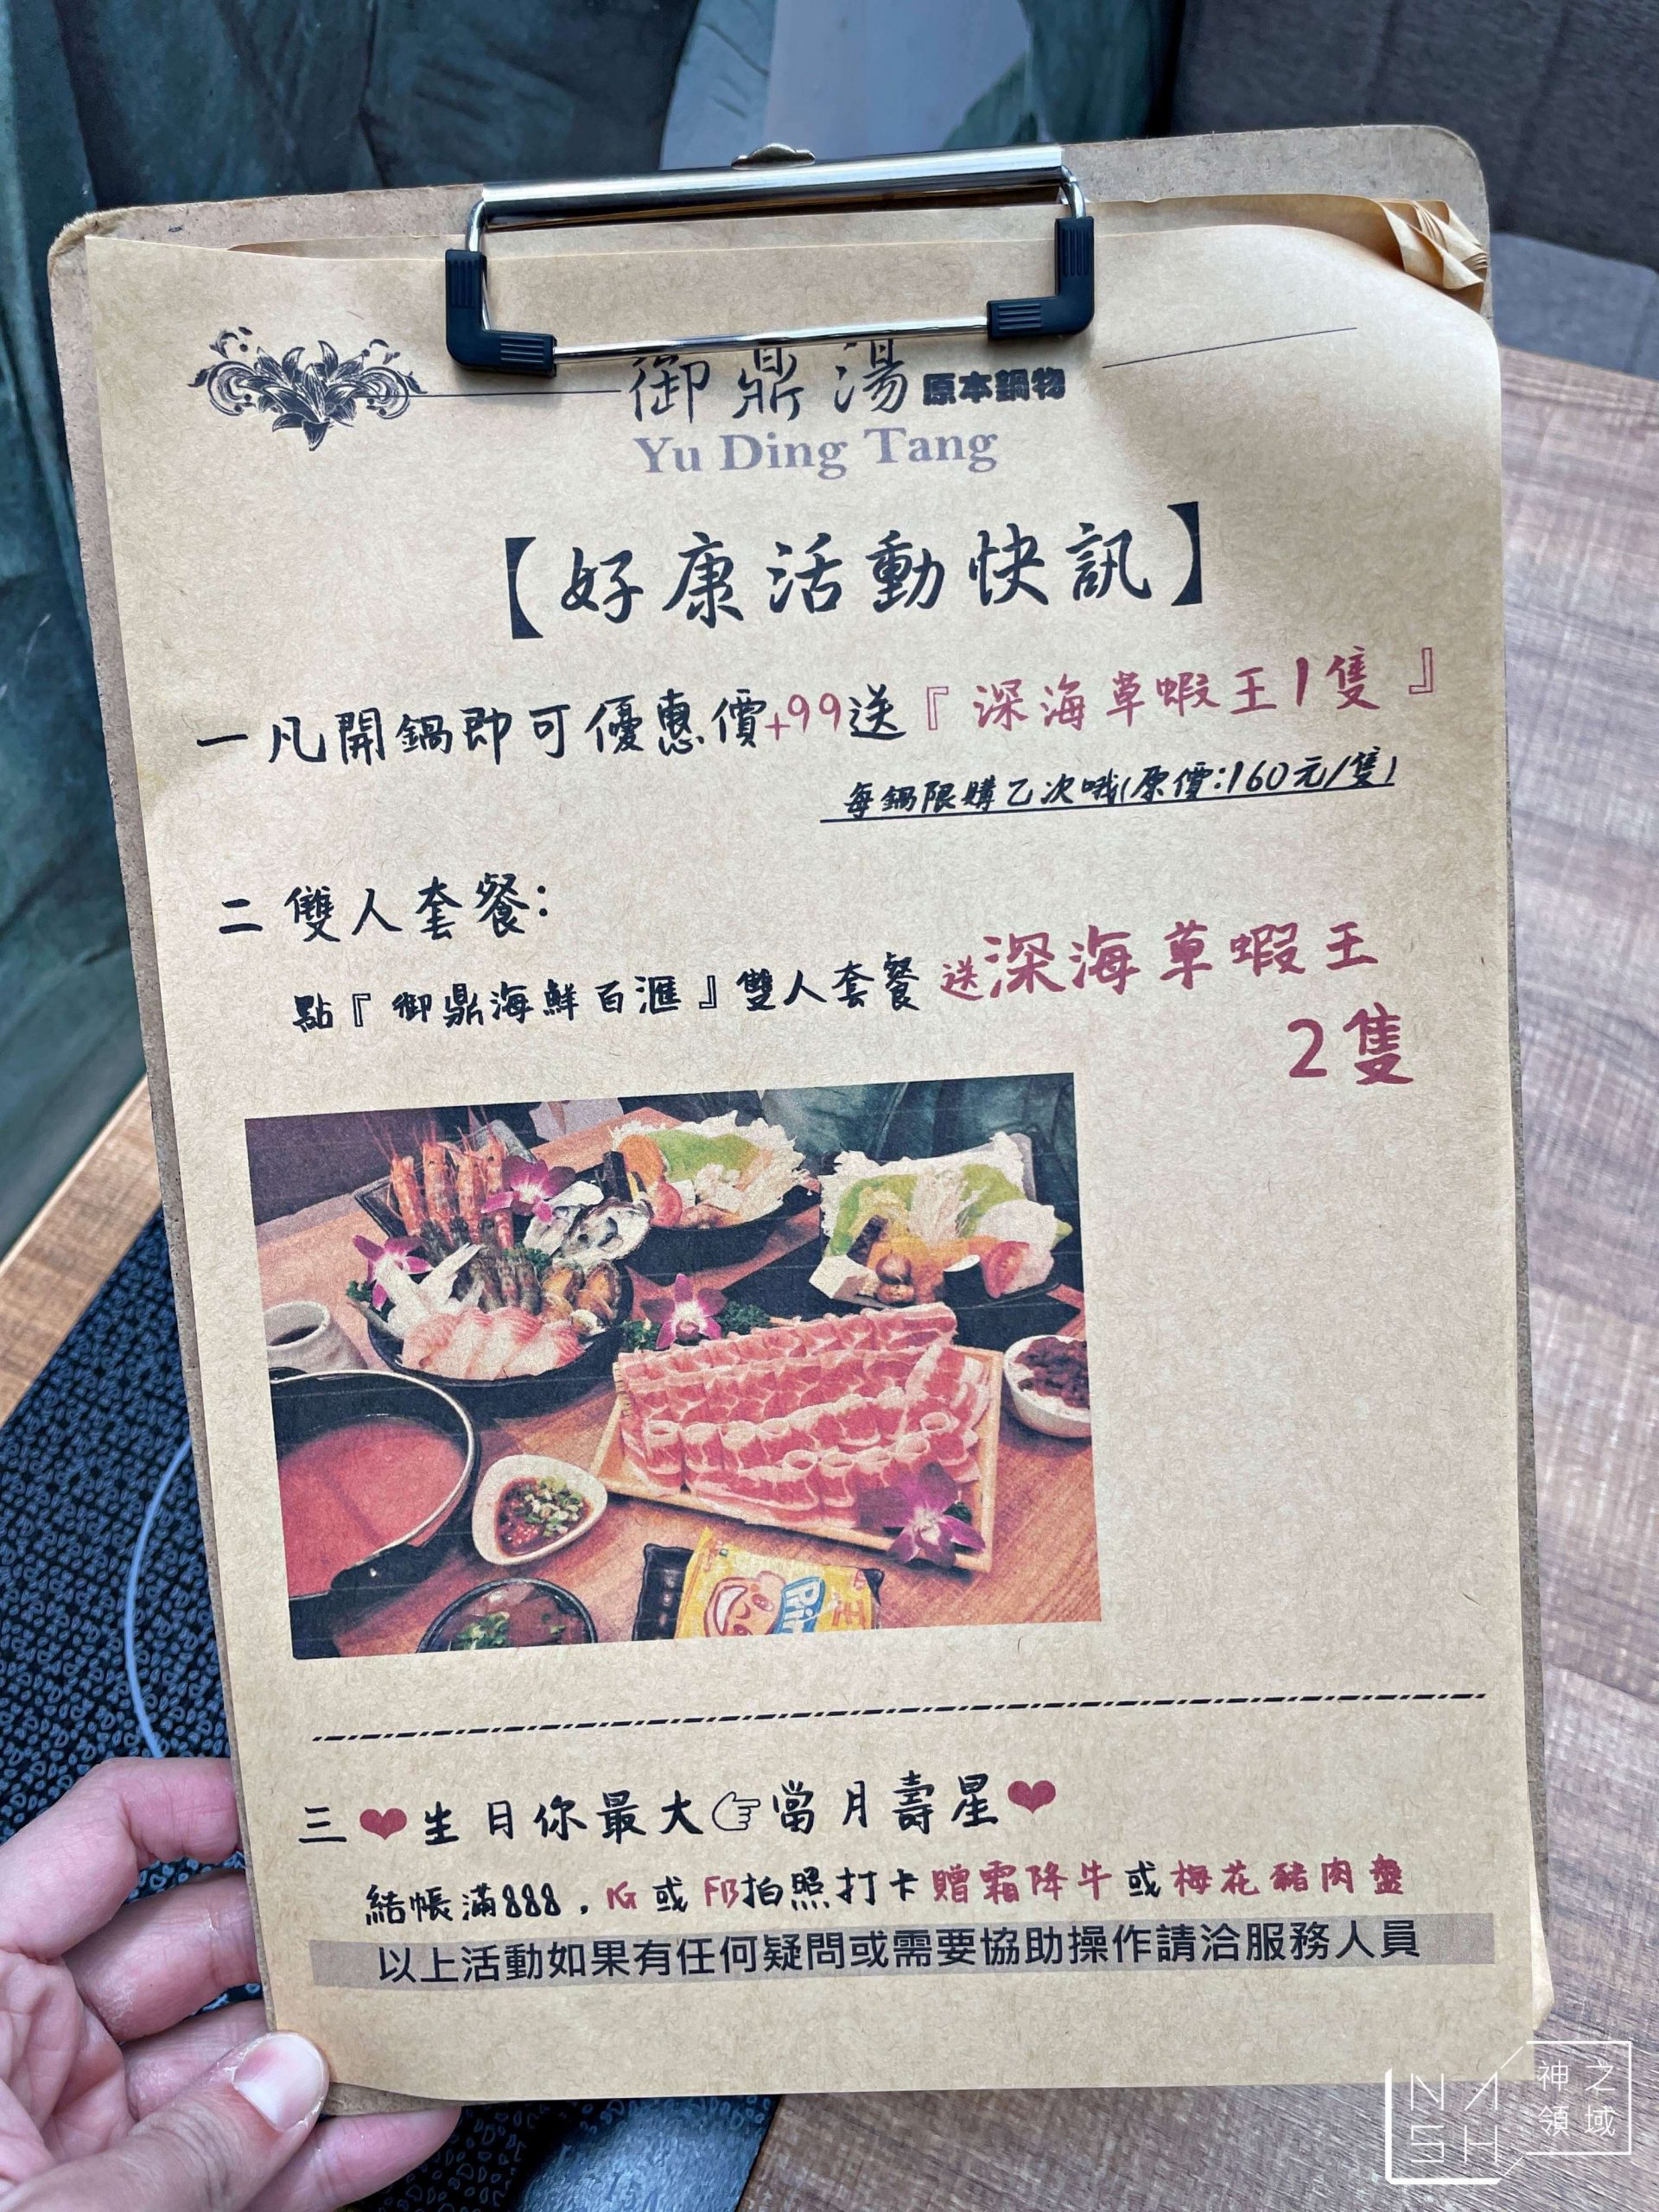 御鼎湯 原本鍋物
Yu Ding Tang
【好康活動快訊】
一凡開鍋即可優惠價+99送『深海草蝦王1隻』
每鍋限購乙次哦(原價:160元/隻)
二 雙人套餐:
點『御鼎海鮮百滙』雙人套餐 送深海草蝦王
2隻
三❤生日你最大👉當月壽星❤
結帳滿888,IG或FB拍照打卡贈霜降牛或梅花豬肉盤
以上活動如果有任何疑問或需要協助操作請洽服務人員
NASH 神之領域